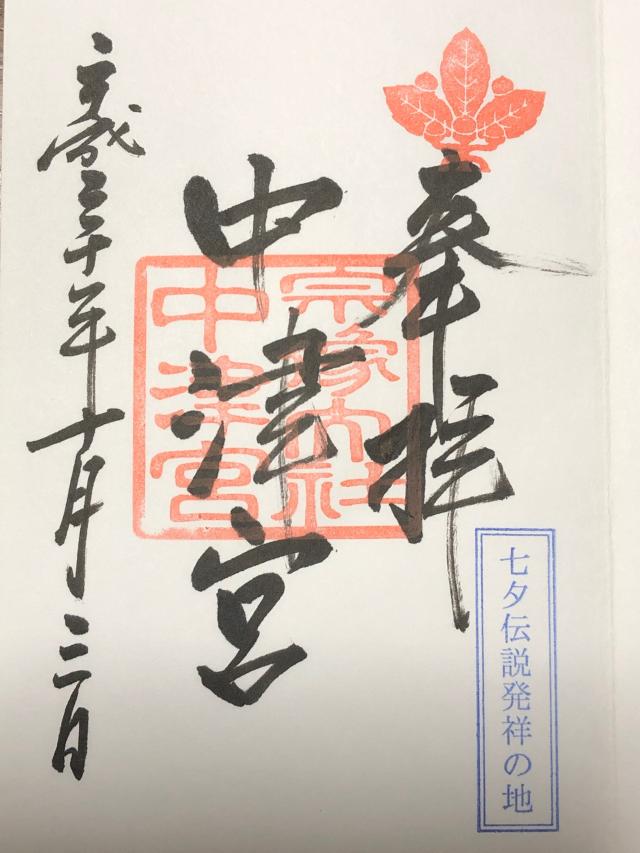 奉拝
七夕伝説発祥の地
宗像大社
中津宮
中津宮
平成三十年十月三日